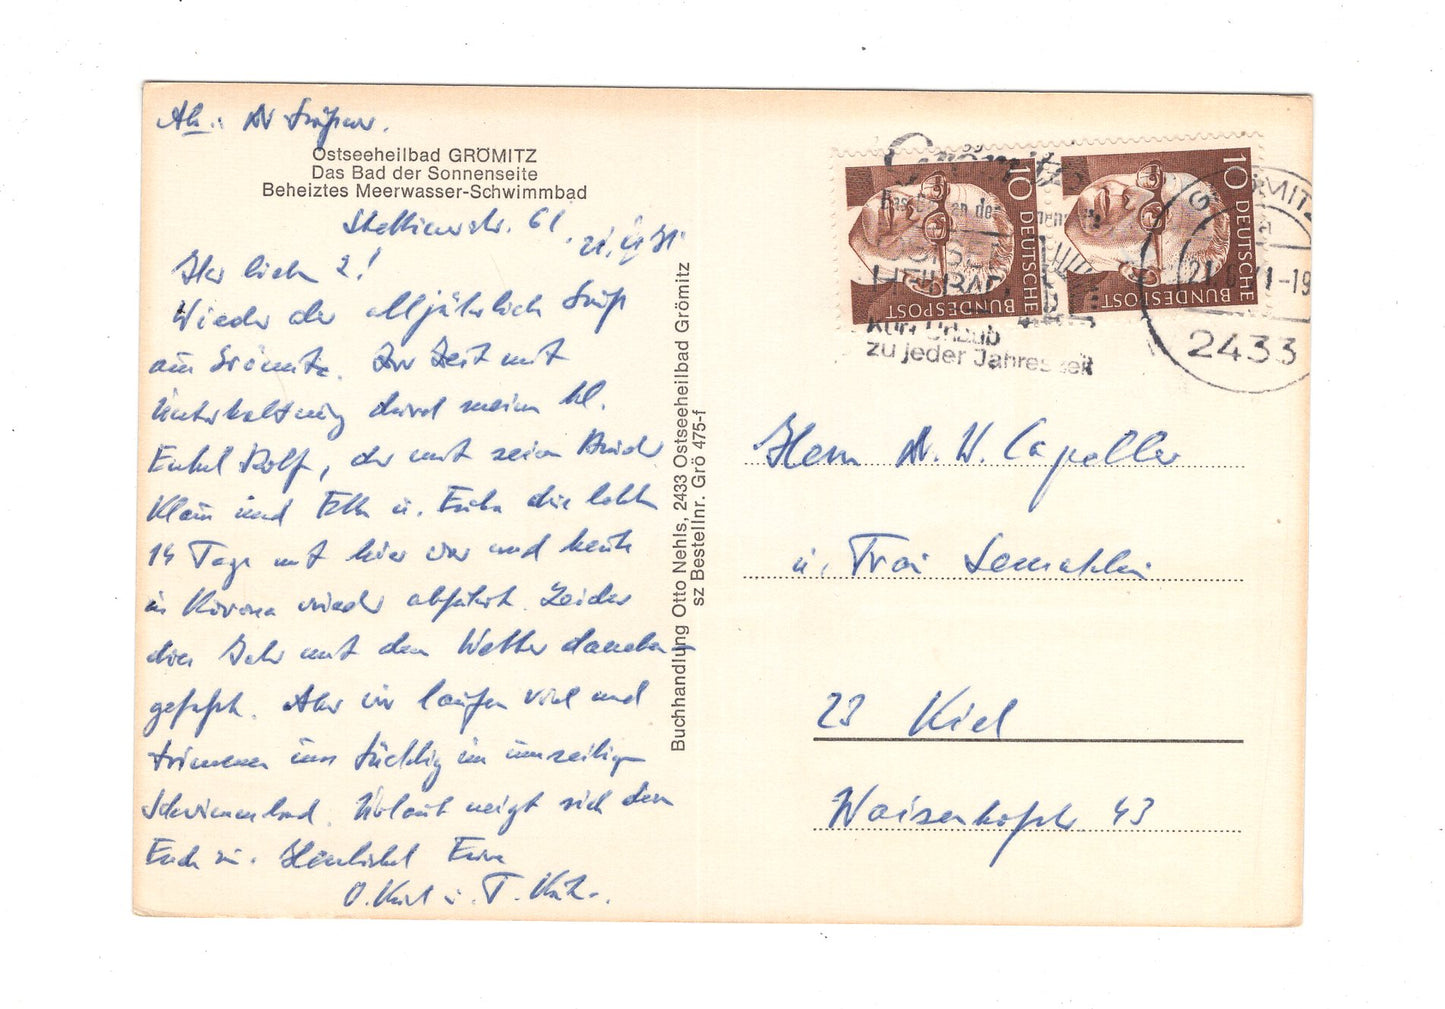 Ostseeheilbad GRÖMITZ
Das Bad der Sonnenseite
Beheiztes Meerwasser-Schwimmbad
Ihr lieben 2!
Wieder der alljährlich Gruß
aus Grömitz. Zur Zeit mit
Unterhaltung durch meinen kl.
Enkel Rolf, der mit seinem Bruder
Klaus und
14 Tage mit hier war und heute
in wieder abfährt. Leider
dies Jahr mit dem Wetter daneben
gefasst. Aber wir laufen viel und
trimmen uns tüchtig im
Schwimmbad. Urlaub neigt sich dem
Ende zu. Herzlichst Eure
O. Karl u. T.
Buchhandlung Otto Nehls, 2433 Ostseeheilbad Grömitz
sz Bestellnr. Grö 475-f
10 DEUTSCHE BUNDESPOST
10 DEUTSCHE BUNDESPOST
Kur Urlaub
zu jeder Jahreszeit
GRÖMITZ
21.6.71-19
2433
Herrn Dr. W. Capeller
u. Frau Gemahlin
23 Kiel
Waisenhofstr. 43